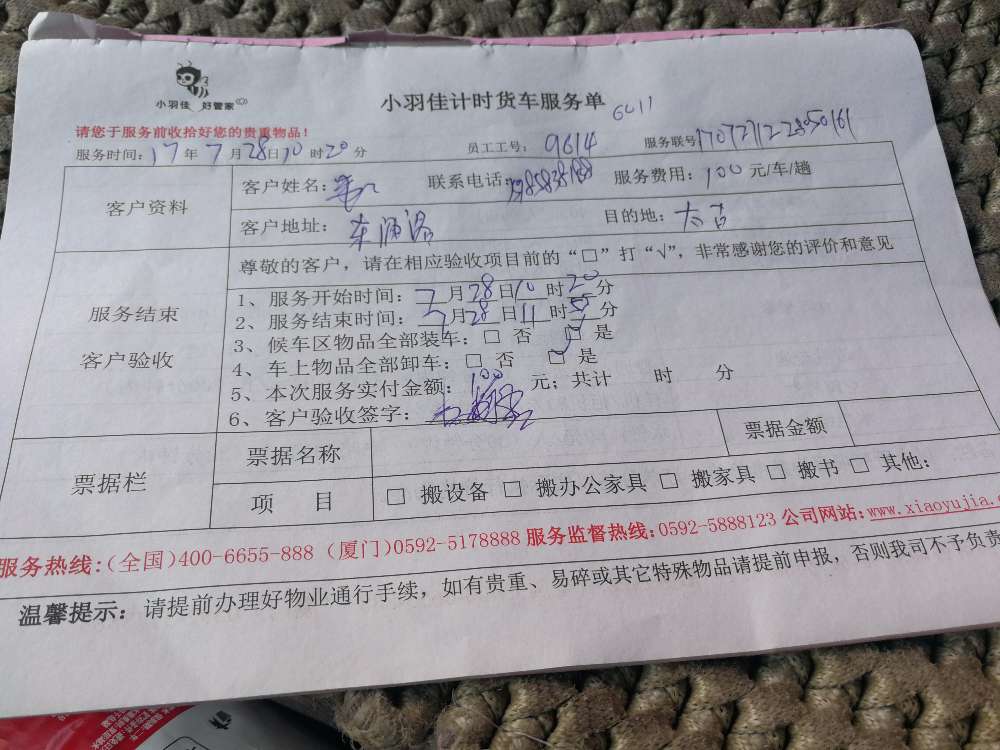 小羽佳 好管家
小羽佳计时货车服务单 6411
请您于服务前收拾好您的贵重物品！
服务时间：17年7月28日10时20分 员工工号：9614 服务联号
客户资料
客户姓名： 联系电话： 服务费用：100元/车/趟
客户地址： 目的地：太古
尊敬的客户，请在相应验收项目前的“□”打“√”，非常感谢您的评价和意见
服务结束
客户验收
1、服务开始时间：7月28日10时20分
2、服务结束时间：7月28日11时分
3、候车区物品全部装车：□ 否 □ 是
4、车上物品全部卸车：□ 否 □ 是
5、本次服务实付金额：100元；共计 时 分
6、客户验收签字：
票据栏
票据名称 票据金额
项 目 □ 搬设备 □ 搬办公家具 □ 搬家具 □ 搬书 □ 其他：
服务热线：(全国)400-6655-888 (厦门)0592-5178888 服务监督热线：0592-5888123 公司网站：www.xiaoyujia.
温馨提示：请提前办理好物业通行手续，如有贵重、易碎或其它特殊物品请提前申报，否则我司不予负责